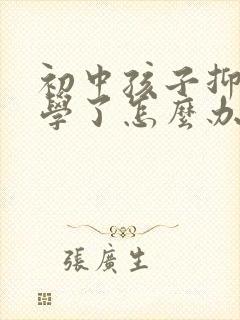 初中孩子抑
學了怎麼办
張廣生